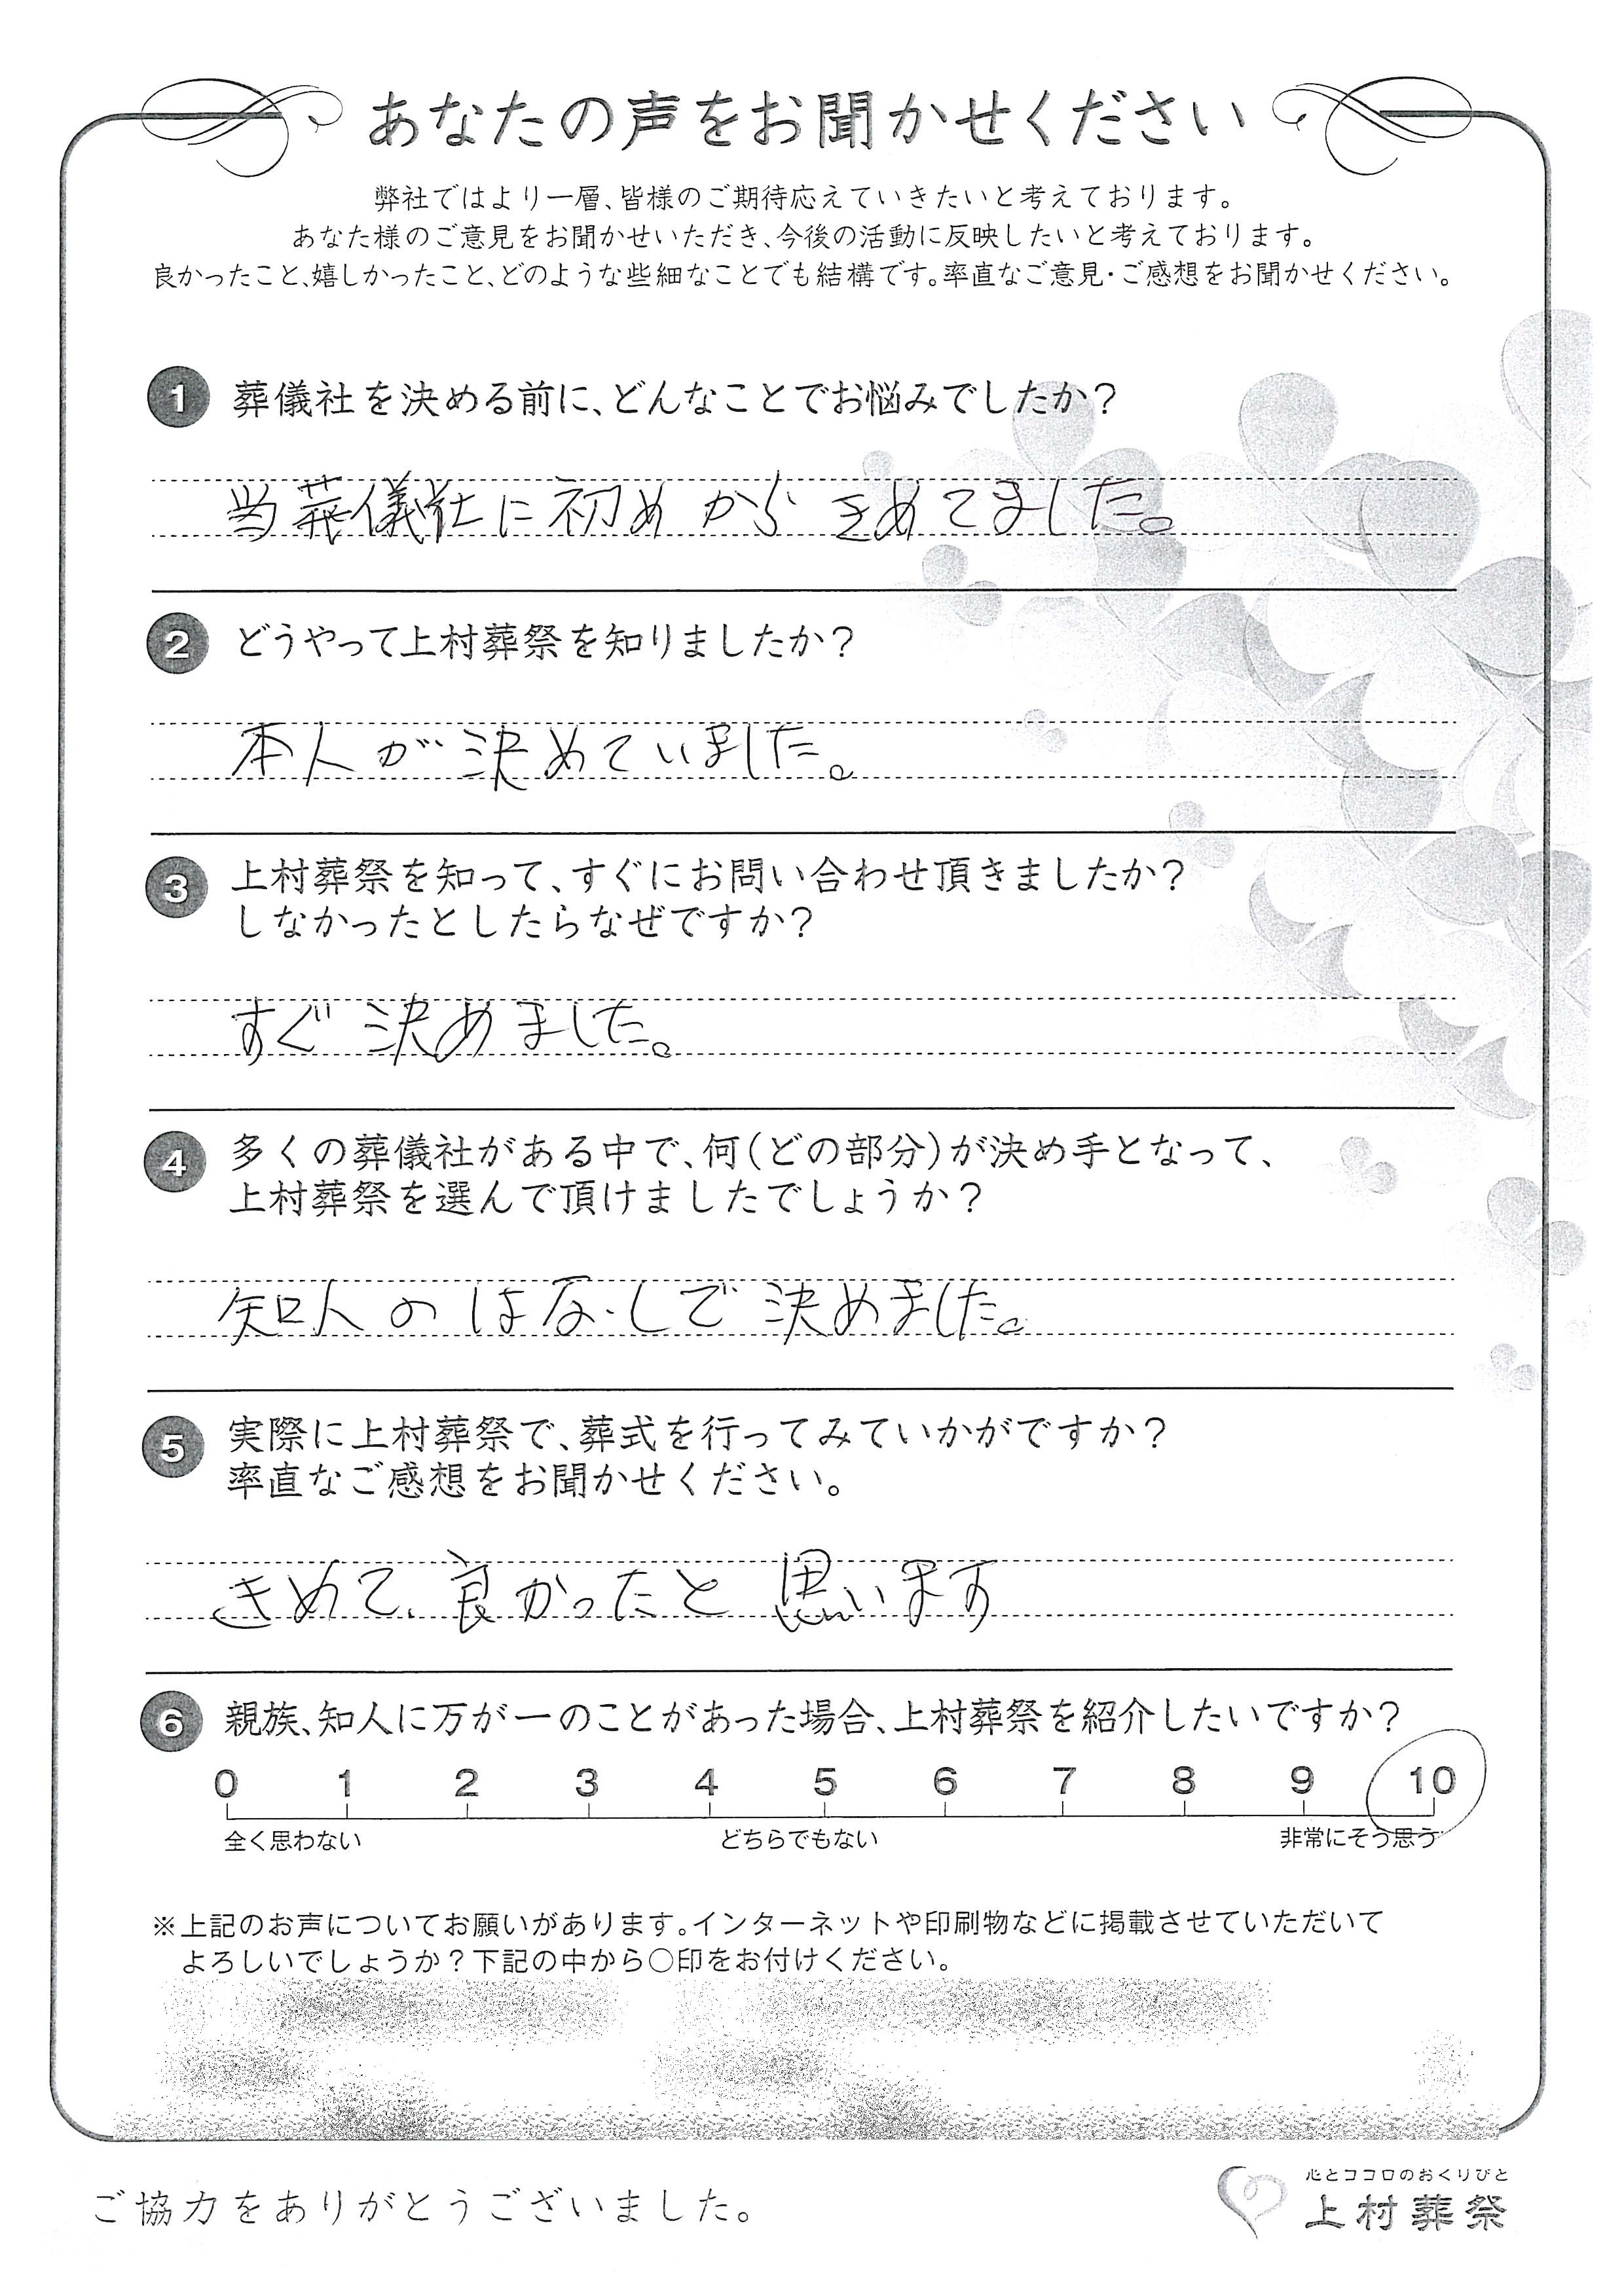 あなたの声をお聞かせください
弊社ではより一層、皆様のご期待応えていきたいと考えております。
あなた様のご意見をお聞かせいただき、今後の活動に反映したいと考えております。
良かったこと、嬉しかったこと、どのような些細なことでも結構です。率直なご意見・ご感想をお聞かせください。
1 葬儀社を決める前に、どんなことでお悩みでしたか?
当葬儀社に初めからきめてました。
2 どうやって上村葬祭を知りましたか?
本人が決めていました。
3 上村葬祭を知って、すぐにお問い合わせ頂きましたか?
しなかったとしたらなぜですか?
すぐ決めました。
4 多くの葬儀社がある中で、何(どの部分)が決め手となって、
上村葬祭を選んで頂けましたでしょうか?
知人のはなしで決めました。
5 実際に上村葬祭で、葬式を行ってみていかがですか?
率直なご感想をお聞かせください。
きめて、良かったと思います
6 親族、知人に万が一のことがあった場合、上村葬祭を紹介したいですか?
0 1 2 3 4 5 6 7 8 9 10
全く思わない どちらでもない 非常にそう思う
※上記のお声についてお願いがあります。インターネットや印刷物などに掲載させていただいて
よろしいでしょうか?下記の中から○印をお付けください。
ご協力をありがとうございました。
心とココロのおくりびと
上村葬祭